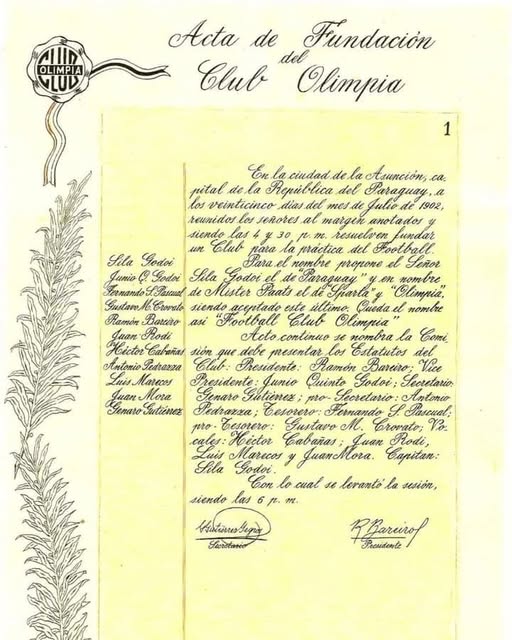 Acta de Fundación
del
Club Olimpia
CLUB
OLIMPIA
CLUB
1
En la ciudad de la Asunción, ca-
pital de la República del Paraguay, a
los veinticinco días del mes de Julio de 1902,
reunidos los señores al margen anotados y
siendo las 4 y 30 p. m. resuelven fundar
un Club para la práctica del Football.
Para el nombre propone el Señor
Sila Godoi el de "Paraguay" y en nombre
de Mister Paats el de "Sparta" y "Olimpia",
siendo aceptado este último. Queda el nombre
asi "Football Club Olimpia"
Acto continuo se nombra la Comi
sión que debe presentar los Estatutos del
Club: Presidente: Ramón Bareiro; Vice
Presidente: Junio Quinto Godoi; Secretario:
Genaro Gutiérrez; pro-Secretario: Antonio
Pedrazza; Tesorero: Fernando S. Pascual;
pro-Tesorero: Gustavo M. Crovato; Vo-
cales: Héctor Cabañas; Juan Rodi,
Luis Marecos y Juan Mora. Capitan:
Sila Godoi.
Con lo cual se levantó la sesión,
siendo las 6 p. m.
Sila Godoi
Junio Q. Godoi
Fernando S. Pascual
Gustavo M. Crovato
Ramón Bareiro
Juan Rodi
Héctor Cabañas
Antonio Pedrazza
Luis Marecos
Juan Mora
Genaro Gutiérrez
Secretario
R. Bareiro
Presidente